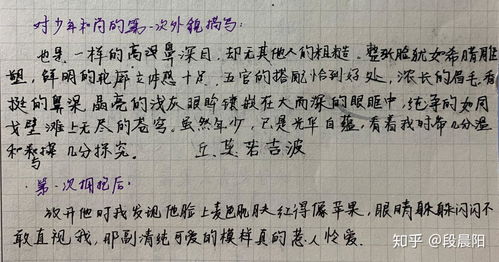 对少年和尚的第一次外貌描写：
也是一样的高鼻深目，却无其他人的粗糙。整张脸犹如希腊雕
塑，鲜明的轮廓立体感十足，五官的搭配恰到好处，浓长的眉毛，
挺的鼻梁，晶亮的浅灰眼眸镶嵌在大而深的眼眶中，纯净的如同
戈壁滩上无尽的苍穹。虽然年少，已是光华自蕴，看着我时带几分温
和与几分探究。 丘莫若吉波
第一次拥抱后：
放开他时我发现他脸上麦色肌肤红得像苹果，眼睛躲躲闪闪不
敢直视我，那副清纯可爱的模样真的惹人怜爱。
知乎 @段晨阳